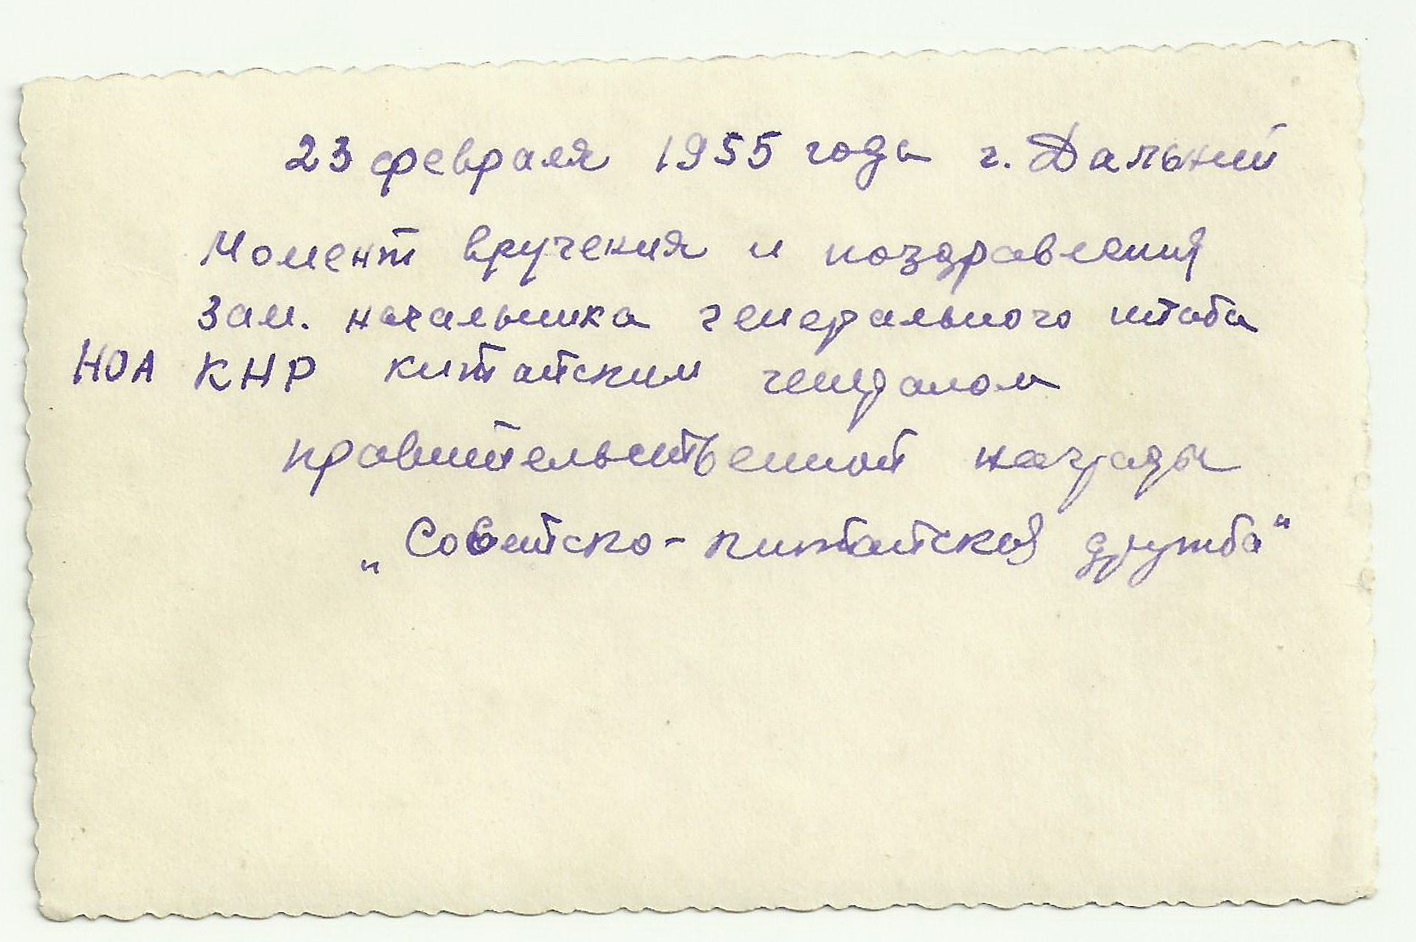 23 февраля 1955 года г. Дальний
Момент вручения и поздравления
зам. начальника генерального штаба
НОА КНР китайским генералом
правительственной награды
„Советско-китайская дружба“